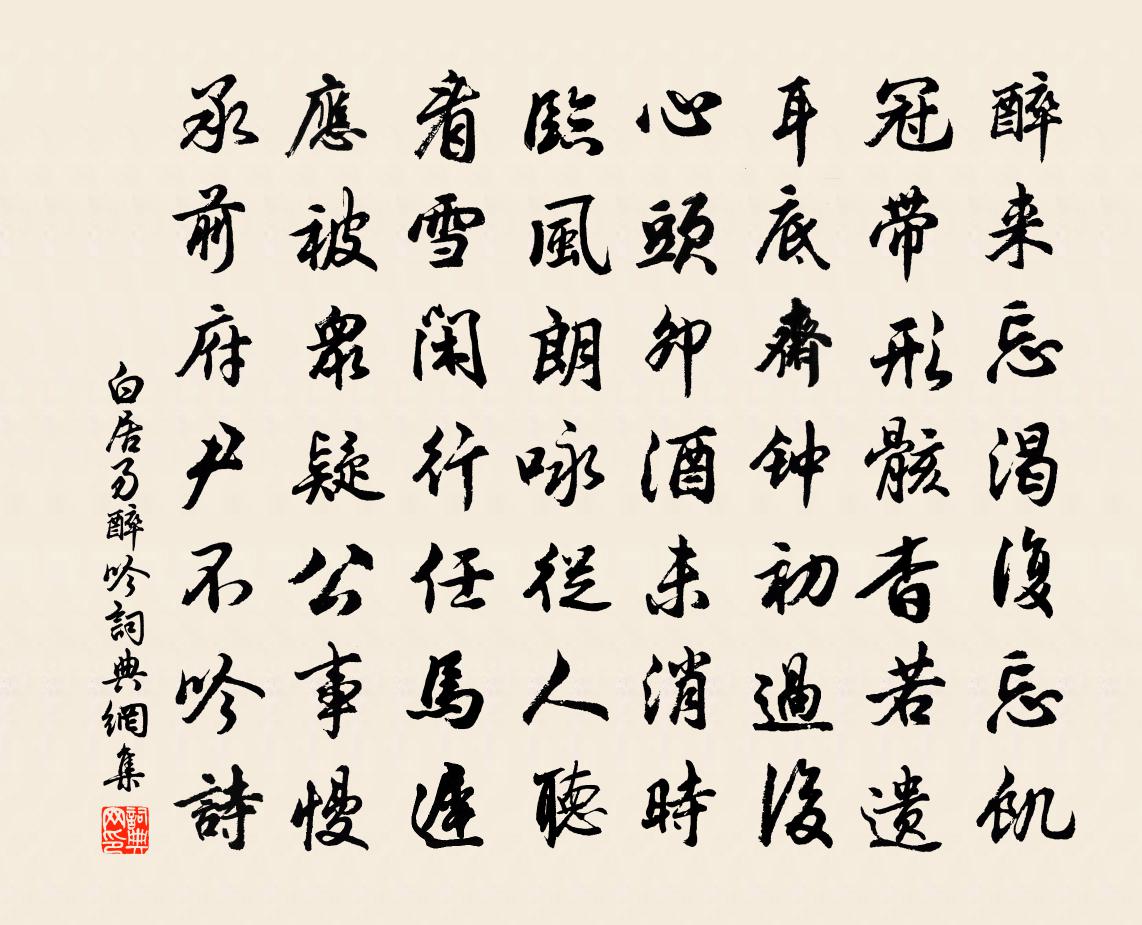 醉来忘渴復忘飢
冠帶形骸杳若遺
耳底齋钟初過後
心頭卯酒未消時
臨風朗咏從人聽
看雪閑行任馬遲
應被衆疑公事慢
承前府尹不吟詩
白居易醉吟詞典網集
詞典网印